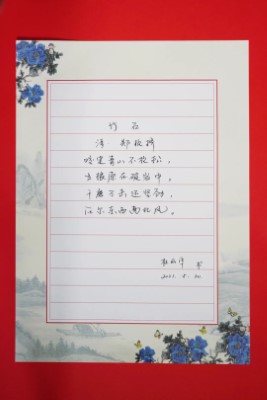 竹石
清·郑板桥
咬定青山不放松，
立根原在破岩中。
千磨万击还坚劲，
任尔东西南北风。
书